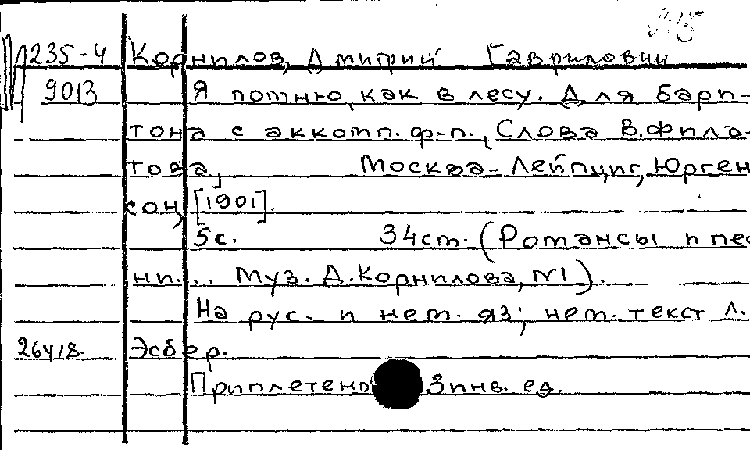 235-4 Корнилов, Дмитрий Гаврилович
9013 Я помню, как в лесу. Для бари-
тона с аккомп. ф-п., Слова В. Фила-
това, Москва - Лейпциг, Юрген
сон, [1901].
5с. 34см. (Романсы и пес
ни... Муз. Д. Корнилова, №1).
На рус. и нем. яз; нем. текст Л.
26418 Эсбер.
Приплетено 3 инв. ед.